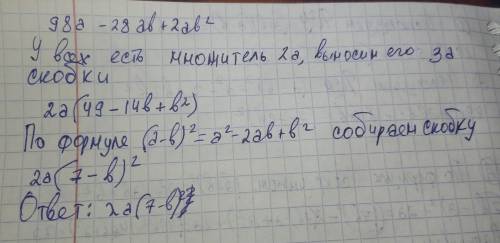 98a - 28ab + 2ab²
У всех есть множитель 2a, выносим его за
скобки
2a(49 - 14b + b²)
По формуле (a-b)² = a² - 2ab + b² собираем скобку
2a(7 - b)²
Ответ: 2a(7-b)²